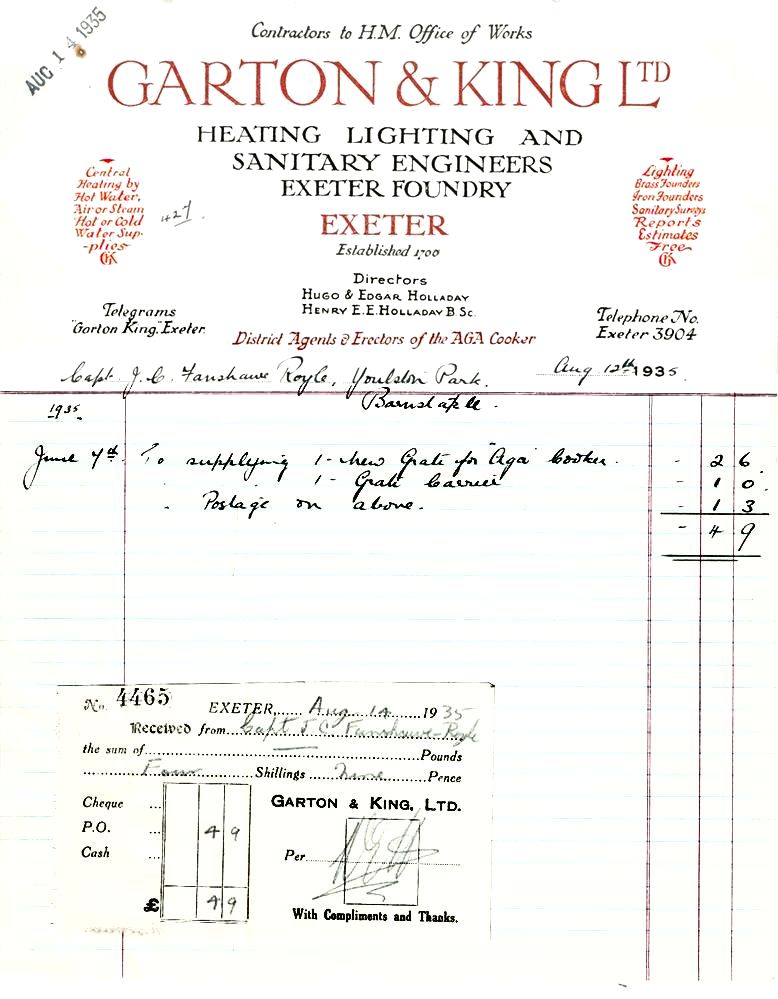 AUG 14 1935
Contractors to H.M. Office of Works
GARTON & KING LTD
HEATING LIGHTING AND
SANITARY ENGINEERS
EXETER FOUNDRY
EXETER
Established 1700
Central
Heating by
Hot Water,
Air or Steam
Hot or Cold
Water Sup-
-plies-
GK
427.
Lighting
Brass Founders
Iron Founders
Sanitary Surveys
Reports
Estimates
Free
GK
Directors
HUGO & EDGAR HOLLADAY
HENRY E.E. HOLLADAY B Sc.
Telegrams
"Garton King." Exeter.
Telephone No.
Exeter 3904
District Agents & Erectors of the AGA Cooker
Capt. J. C. Fanshawe Royle, Youlston Park. Aug 12th 1935.
Barnstaple.
1935.
June 7th. To supplying 1- New Grate for "Aga" Cooker. - 2 6.
" 1- Grate Carrier - 1 0.
" Postage on above. - 1 3
- 4 9
No. 4465 EXETER,...... Aug 14 ......19 35
Received from Capt J C Fanshawe-Royle
the sum of...... — ......Pounds
Four Shillings Nine Pence
Cheque ...
P.O. ... 4 9
Cash ...
£ 4 9
GARTON & KING, LTD.
Per
With Compliments and Thanks.